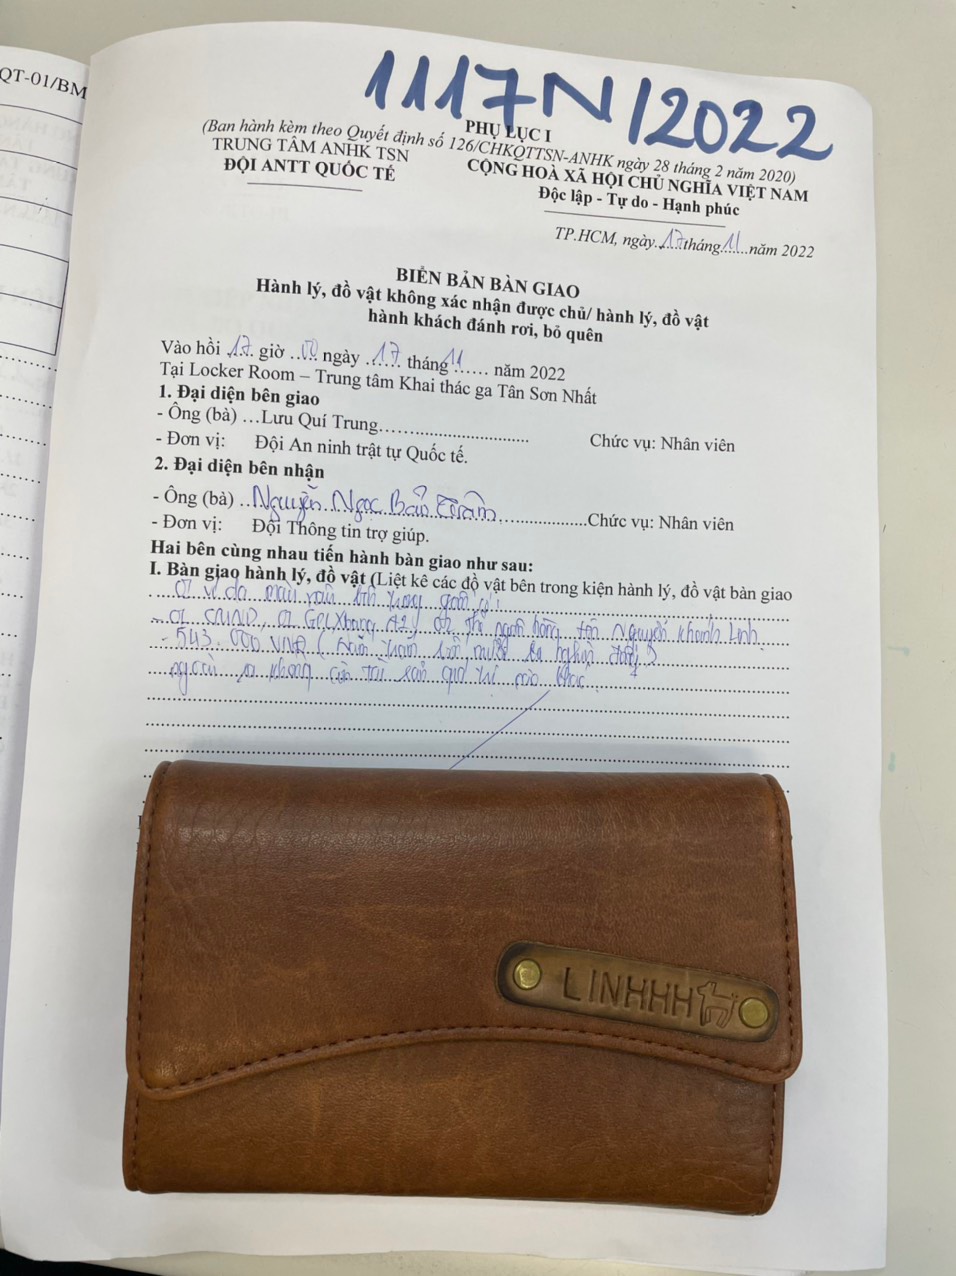 QT-01/BM
1117N/2022
PHỤ LỤC I
(Ban hành kèm theo Quyết định số 126/CHKQTTSN-ANHK ngày 28 tháng 2 năm 2020)
TRUNG TÂM ANHK TSN
CỘNG HOÀ XÃ HỘI CHỦ NGHĨA VIỆT NAM
ĐỘI ANTT QUỐC TẾ
Độc lập - Tự do - Hạnh phúc
TP.HCM, ngày 17 tháng 11 năm 2022
BIÊN BẢN BÀN GIAO
Hành lý, đồ vật không xác nhận được chủ/ hành lý, đồ vật
hành khách đánh rơi, bỏ quên
Vào hồi 17 giờ 00 ngày 17 tháng 11 năm 2022
Tại Locker Room – Trung tâm Khai thác ga Tân Sơn Nhất
1. Đại diện bên giao
- Ông (bà) ...Lưu Quí Trung Chức vụ: Nhân viên
- Đơn vị: Đội An ninh trật tự Quốc tế.
2. Đại diện bên nhận
- Ông (bà) Nguyễn Ngọc Bảo Trâm Chức vụ: Nhân viên
- Đơn vị: Đội Thông tin trợ giúp.
Hai bên cùng nhau tiến hành bàn giao như sau:
I. Bàn giao hành lý, đồ vật (Liệt kê các đồ vật bên trong kiện hành lý, đồ vật bàn giao
01 ví da màu nâu bên trong gồm có:
- 01 CMND, 01 GPLX hạng A1, thẻ ngân hàng tên Nguyễn Khánh Linh
- 543.000 VNĐ (Năm trăm bốn mươi ba nghìn đồng)
ngoài ra không còn tài sản quý giá nào khác
LINHHH